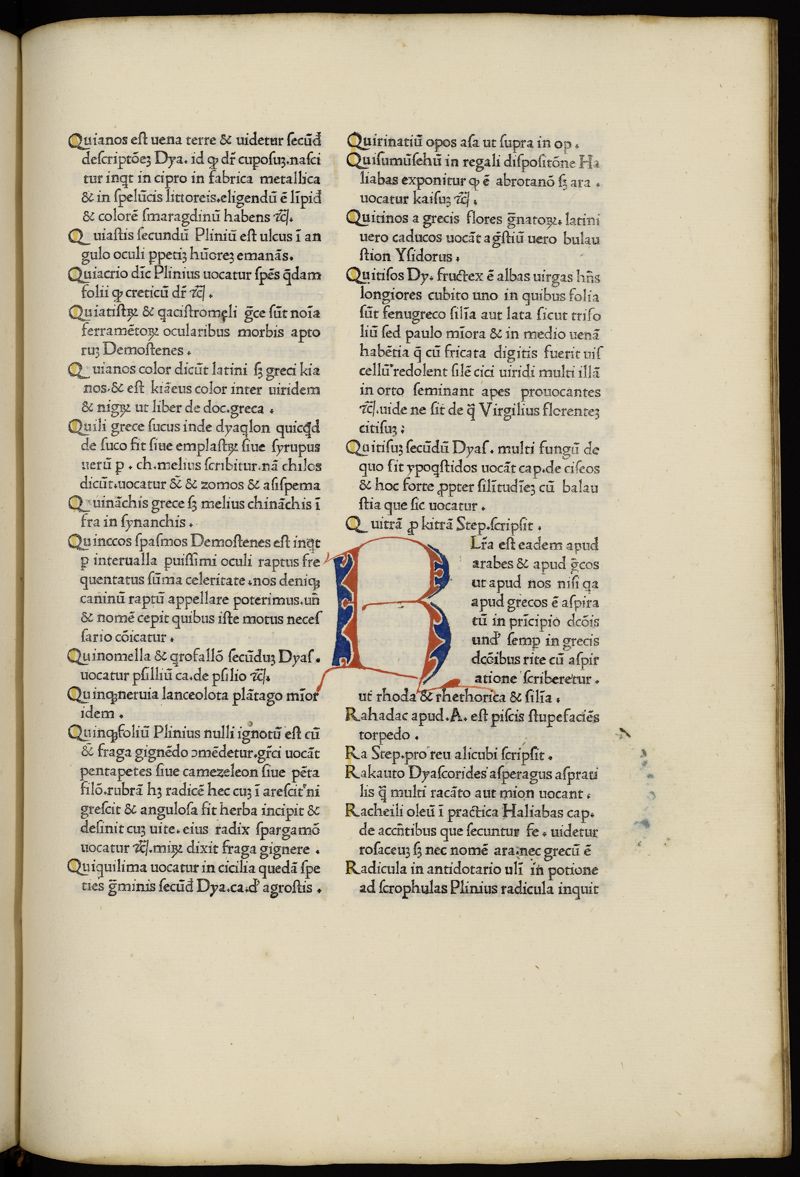 Quianos eſt uena terre & uidetur ſecūđ
deſcriptōeꝫ Dya. id ꝙ dr̄ cupoſuꝫ.naſci
tur inqͥt in cipro in fabrica metallica
& in ſpelūcis littoreis.eligendū ē līpid
& colorē ſmaragdinū habens ⁊cͥ.
Quiaſtis ſecundū Pliniū eſt ulcus ī an
gulo oculi ꝑpetiꝫ hūoreꝫ emanās.
Quiacrio dīc Plinius uocatur ſpēs q̄dam
folii ꝙ creticū dr̄ ⁊cͥ.
Quiatiſtꝝ & qaciſtromęli ḡce ſūt noīa
ferramētoꝝ ocularibus morbis apto
ruꝫ Demoſtenes.
Quianos color dicūt latini ſꝫ greci kia
nos.& eſt kiāeus color inter uiridem
& nigꝝ ut liber de doc.greca.
Quili grece ſucus inde dyaqlon quicq̄d
de ſuco fit ſiue emplaſtꝝ ſiue ſyrupus
uerū p. ch.melius ſcribitur.nā chilos
dicūt.uocatur & & zomos & aſiſpema
Quināchis grece ſꝫ melius chināchis ī
fra in ſynanchis.
Quinccos ſpaſmos Demoſtenes eſt inqͥt
ꝑ interualla puiſſimi oculi raptus fre
quentatus ſūma celeritate.nos deniqꝫ
caninū raptū appellare poterimus.uñ
& nomē cepit quibus iſte motus neceſ
ſario cōicatur.
Quinomella & qrofallō ſecūduꝫ Dyaſ.
uocatur pſilliū ca.de pſilio ⁊cͥ.
Quinqꝫneruia lanceolota plātago mīor
idem.
Quinqꝫfoliū Plinius nulli ignotū eſt cū
& fraga gignēdo ↄmēdetur.gr̄ci uocāt
pentapetes ſiue camezeleon ſiue pēta
filō.rubrā hꝫ radicē hec cuꝫ ī areſcit ni
greſcit & anguloſa fit herba incipit &
deſinit cuꝫ uite.eius radix ſpargamō
uocatur ⁊cͥ.miꝝ dixit fraga gignere.
Quiquilima uocatur in cicilia quedā ſpe
ties ḡminis ſecūđ Dya.ca.đ agroſtis.
Quirinatiū opos aſa ut ſupra in op.
Quiſumūſehū in regali diſpoſitōne Ha
liabas exponitur ꝙ ē abrotanō ſꝫ ara.
uocatur kaiſuꝫ ⁊cͥ.
Quitinos a grecis flores ḡnatoꝝ. latini
uero caducos uocāt ag̅ſtiū uero bulau
ſtion Yſidorus.
Quitiſos Dy. fructex ē albas uirgas hn̄s
longiores cubito uno in quibus folia
ſūt fenugreco ſilīa aut lata ſicut trifo
liū ſed paulo mīora & in medio uenā
habētia q̄ cū fricata digitis fuerit uiſ
cellū redolent ſilē cici uiridi multi illā
in orto ſeminant apes prouocantes
⁊cͥ.uide ne ſit de q̄ Virgilius florenteꝫ
citiſuꝫ:
Quitiſuꝫ ſecūdū Dyaſ. multi fungū de
quo fit ypoqͥſtidos uocāt cap.de ciſeos
& hoc forte ꝓpter ſilītudīeꝫ cū balau
ſtia que ſic uocatur.
Quitrā ꝓ kitrā Step.ſcripſit.
R Lr̄a eſt eadem apud
arabes & apud ḡcos
ut apud nos niſi qa
apud grecos ē aſpira
tū in prīcipio dcōis
unđ ſemꝑ in grecis
dcōibus rite cū aſpir
atione ſcriberetur.
ut rhoda & rhethorica & ſilīa.
Rahadac apud.A. eſt piſcis ſtupefaciēs
torpedo.
Ra Step.pro reu alicubi ſcripſit.
Rakauto Dyaſcorides aſperagus aſprati
lis q̄ multi racāto aut mion uocant.
Racheili oleū ī practica Haliabas cap.
de accñtibus que ſecuntur fe. uidetur
roſaceuꝫ ſꝫ nec nomē ara.nec grecū ē
Radicula in antidotario ulī iñ potione
ad ſcrophulas Plinius radicula inquit